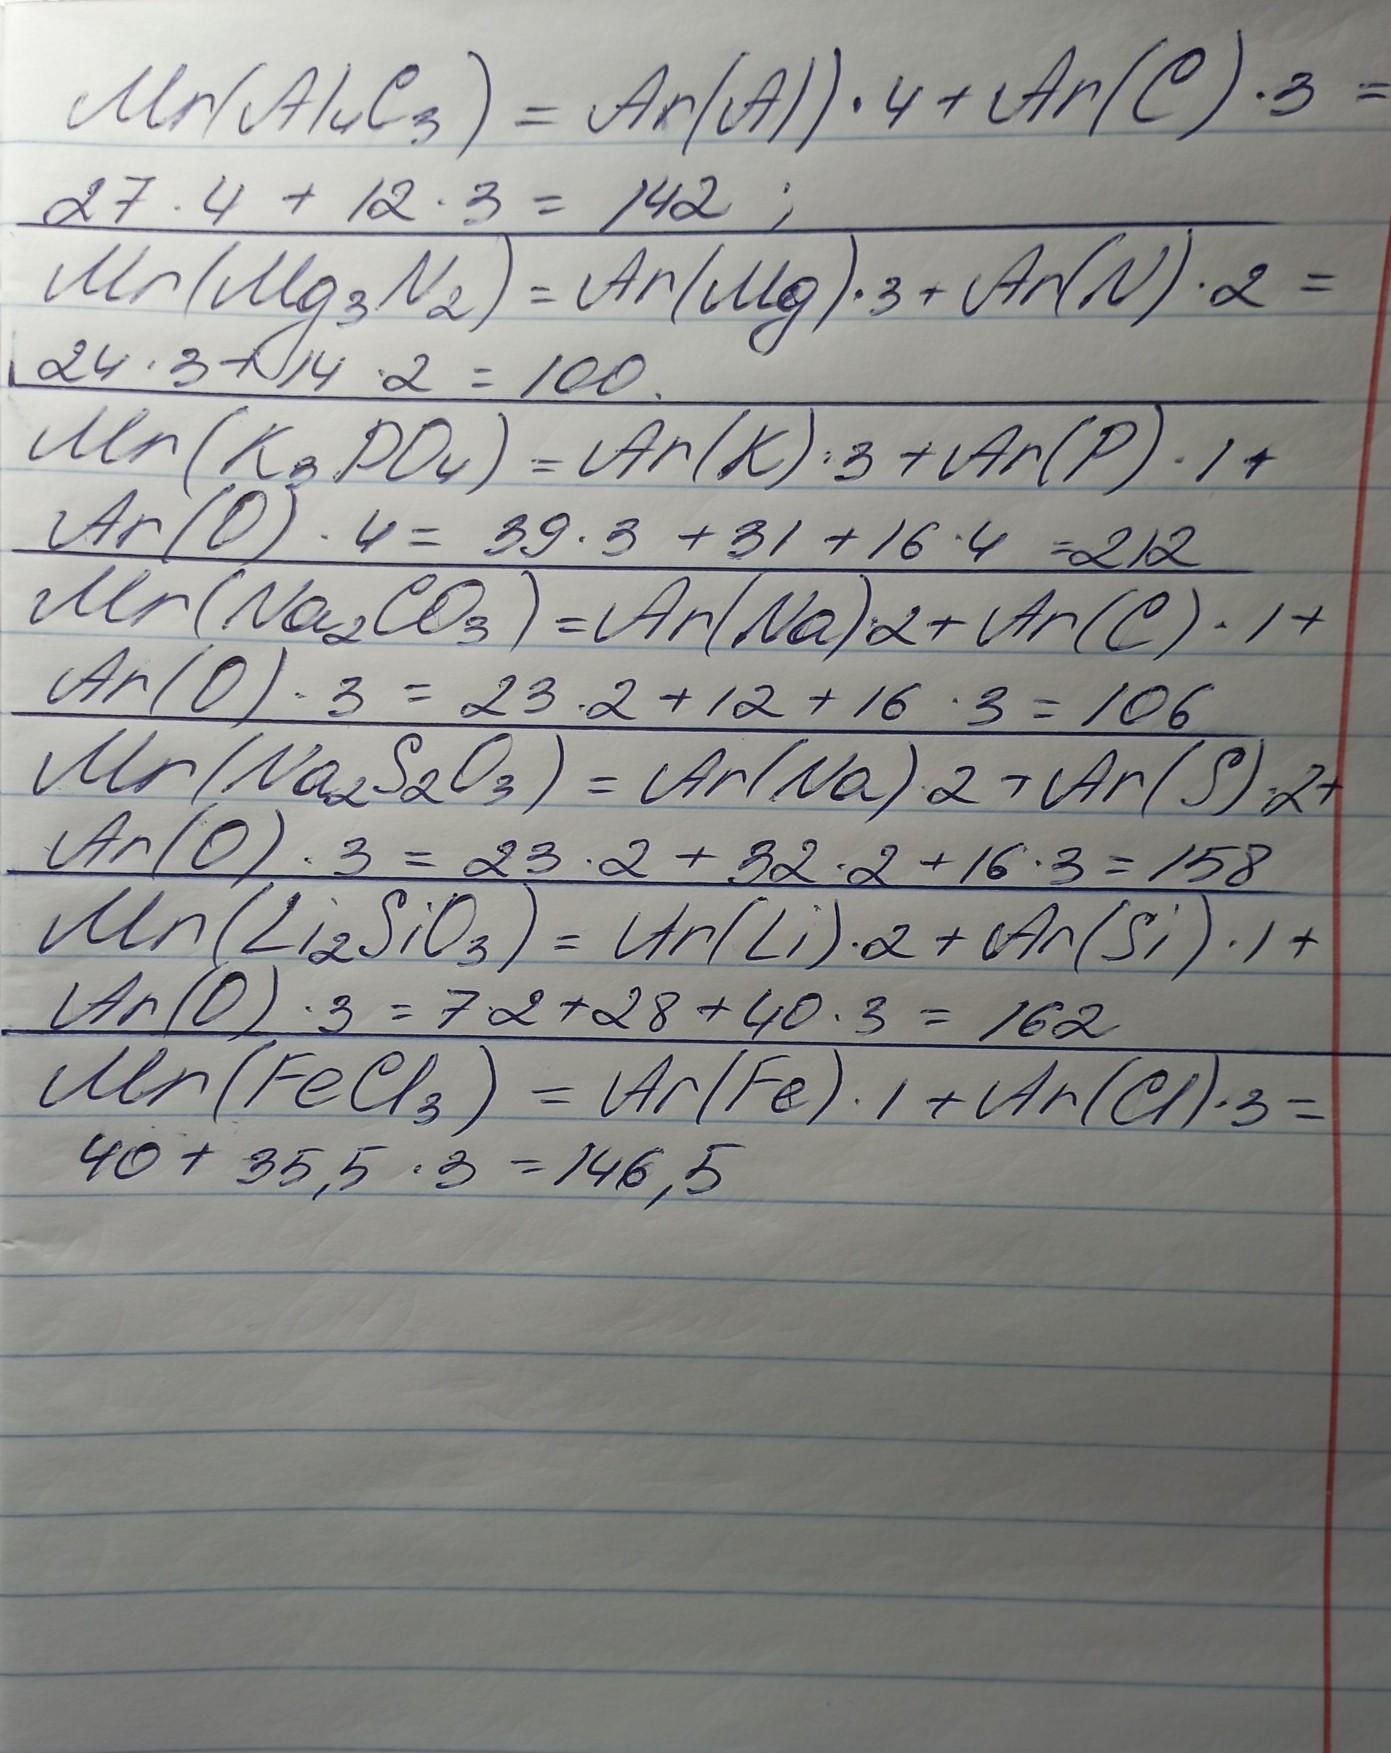 Mr(Al₄C₃) = Ar(Al)·4+Ar(C)·3 =
27·4 + 12·3 = 142;
Mr(Mg₃N₂) = Ar(Mg)·3+Ar(N)·2 =
24·3+14·2 = 100.
Mr(K₃PO₄) = Ar(K)·3+Ar(P)·1+
Ar(O)·4= 39·3 +31+16·4 =212
Mr(Na₂CO₃) =Ar(Na)·2+Ar(C)·1+
Ar(O)·3 = 23·2+12+16·3=106
Mr(Na₂S₂O₃) = Ar(Na)·2+Ar(S)·2+
Ar(O)·3 = 23·2+32·2+16·3=158
Mr(Li₂SiO₃) = Ar(Li)·2+Ar(Si)·1+
Ar(O)·3 = 7·2+28+40·3 = 162
Mr(FeCl₃) = Ar(Fe)·1+Ar(Cl)·3=
40+35,5·3=146,5